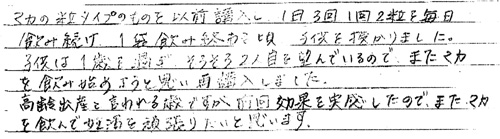 マカの粒タイプのものを以前購入し、1日3回1回2粒を毎日
飲み続け 1袋飲み終わる頃 子供を授かりました。
子供は1歳を過ぎ そろそろ2人目を望んでいるので、またマカ
を飲み始めようと思い再購入しました。
高齢出産と言われる歳ですが前回効果を実感したので、またマカ
を飲んで妊活を頑張りたいと思います。